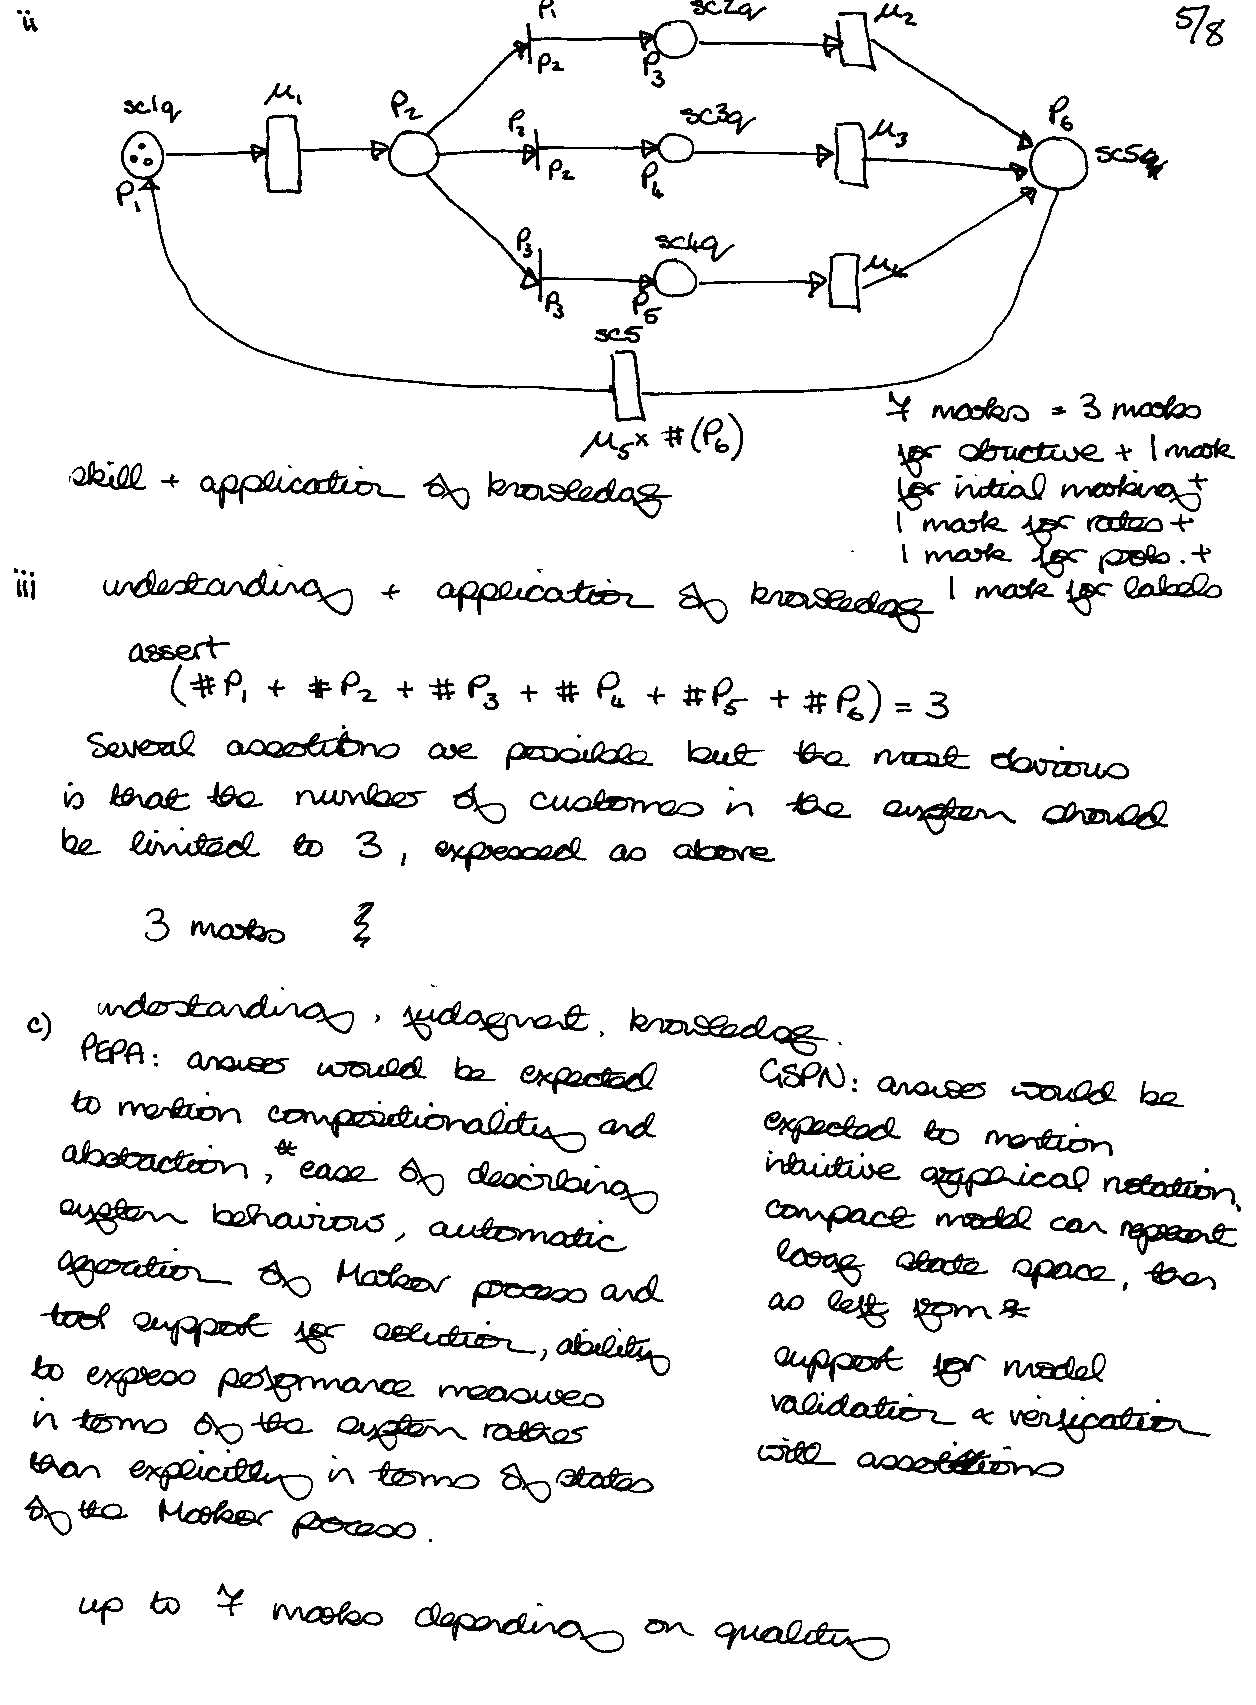 ii
5/8
P1 sc2q μ2
P2 P3
sc1q μ1 P2 P2 sc3q μ3 P6
P2 P4 sc5q
P1
P3 sc4q μ4
P3 P5
sc5
μ5 × #(P6)
7 marks = 3 marks
for structure + 1 mark
for initial marking +
1 mark for rates +
1 mark for prob. +
1 mark for labels
skill + application of knowledge
iii understanding + application of knowledge
assert
(#P1 + #P2 + #P3 + #P4 + #P5 + #P6) = 3
Several assertions are possible but the most obvious
is that the number of customers in the system should
be limited to 3, expressed as above
3 marks
c) understanding, judgment, knowledge.
PEPA: answers would be expected
to mention compositionality and
abstraction, * ease of describing
system behaviours, automatic
generation of Markov process and
tool support for solution, ability
to express performance measures
in terms of the system rather
than explicitly in terms of states
of the Markov process.
GSPN: answers would be
expected to mention
intuitive graphical notation,
compact model can represent
large state space, then
as left from *
support for model
validation & verification
with assertions
up to 7 marks depending on quality